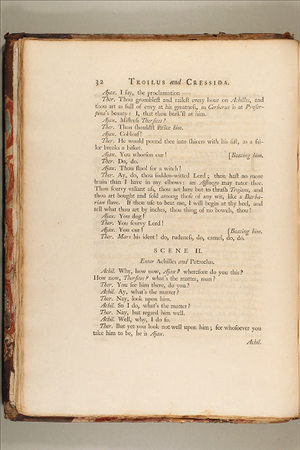 32 TROILUS and CRESSIDA.
Ajax. I say, the proclamation—
Ther. Thou grumblest and railest every hour on Achilles, and
thou art as full of envy at his greatness, as Cerberus is at Proser-
pina's beauty: I, that thou bark'st at him.
Ajax. Mistress Thersites!
Ther. Thou shouldst strike him.
Ajax. Cobloaf!
Ther. He would pound thee into shivers with his fist, as a sai-
lor breaks a bisket.
Ajax. You whorson cur! [Beating him.
Ther. Do, do.
Ajax. Thou stool for a witch!
Ther. Ay, do, thou sodden-witted Lord; thou hast no more
brain than I have in my elbows: an Assinego may tutor thee.
Thou scurvy valiant ass, thou art here but to thrash Trojans, and
thou art bought and sold among those of any wit, like a Barba-
rian slave. If thou use to beat me, I will begin at thy heel, and
tell what thou art by inches, thou thing of no bowels, thou!
Ajax. You dog!
Ther. You scurvy Lord!
Ajax. You cur! [Beating him.
Ther. Mars his ideot! do, rudeness, do, camel, do, do.
SCENE II.
Enter Achilles and Patroclus.
Achil. Why, how now, Ajax? wherefore do you this?
How now, Thersites? what's the matter, man?
Ther. You see him there, do you?
Achil. Ay, what's the matter?
Ther. Nay, look upon him.
Achil. So I do, what's the matter?
Ther. Nay, but regard him well.
Achil. Well, why, I do so.
Ther. But yet you look not well upon him; for whosoever you
take him to be, he is Ajax.
Achil.